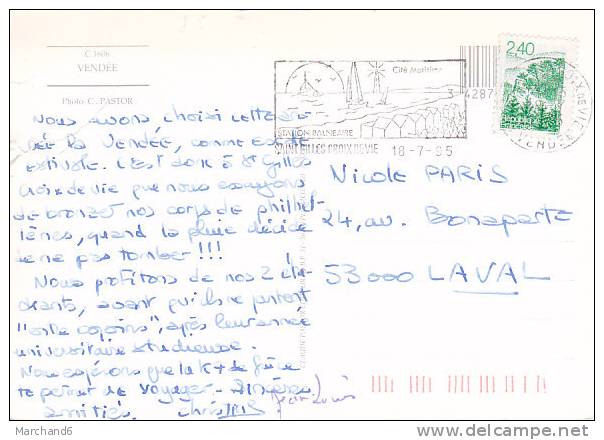 C 1606
VENDÉE
Photo C. PASTOR
Nous avons choisi cette année
la Vendée, comme escale
estivale. C'est donc à St Gilles
Croix de vie que nous essayons
de bronzer nos corps de
quand la pluie décide
de ne pas tomber !!!
Nous profitons de nos 2 étu-
diants, avant qu'ils ne partent
"entre copains", après leur année
universitaire studieuse.
Nous espérons que la
te permet de voyager -
amitiés. Christine
Jean-Louis
Cité Maritime
STATION BALNEAIRE
SAINT GILLES CROIX DE VIE
18-7-95
2,40
Nicole PARIS
24, av. Bonaparte
53000 LAVAL
Marchand6
www.delcampe.net